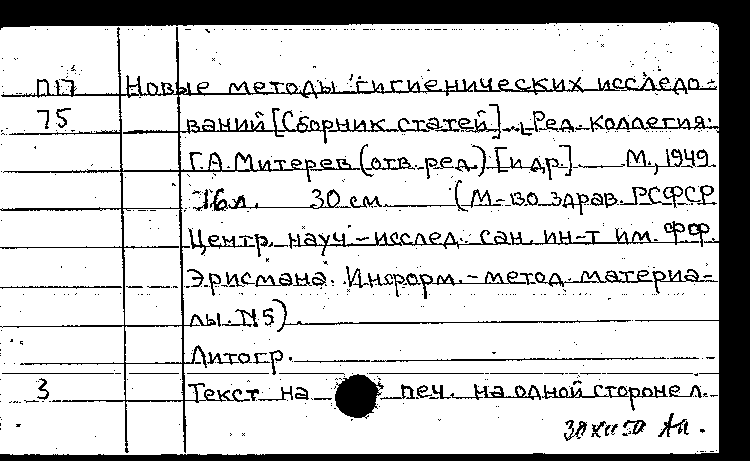 П17 Новые методы гигиенических исследо-
75 ваний [Сборник статей]. [Ред. коллегия:
Г.А. Митерев (отв. ред.) [и др.] М., 1949
16 л. 30 см. (М-во здрав. РСФСР
Центр. науч-исслед. сан. ин-т им. ФФ.
Эрисмана. Информ.-метод. материа-
лы. №5).
Литогр.
3 Текст на печ. на одной стороне л.
30 XII 50